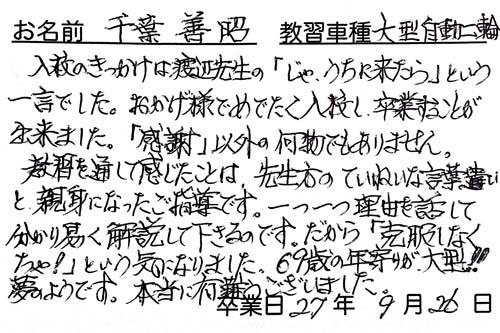 お名前 千葉 善昭 教習車種 大型自動二輪
入校のきっかけは渡辺先生の「じゃ、うちに来たら」という
一言でした。おかげ様でめでたく入校し、卒業することが
出来ました。「感謝」以外の何物でもありません。
教習を通して感じたことは、先生方のていねいな言葉遣い
と、親身になったご指導です。一つ一つ理由を話して
分かり易く解説して下さるのです。だから「克服しなく
ちゃ!」という気になりました。69歳の年寄りが、大型!!
夢のようです。本当に有難うございました。
卒業日 27年 9月 26日